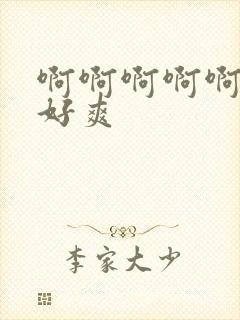 啊啊啊啊啊
好爽
李家大少